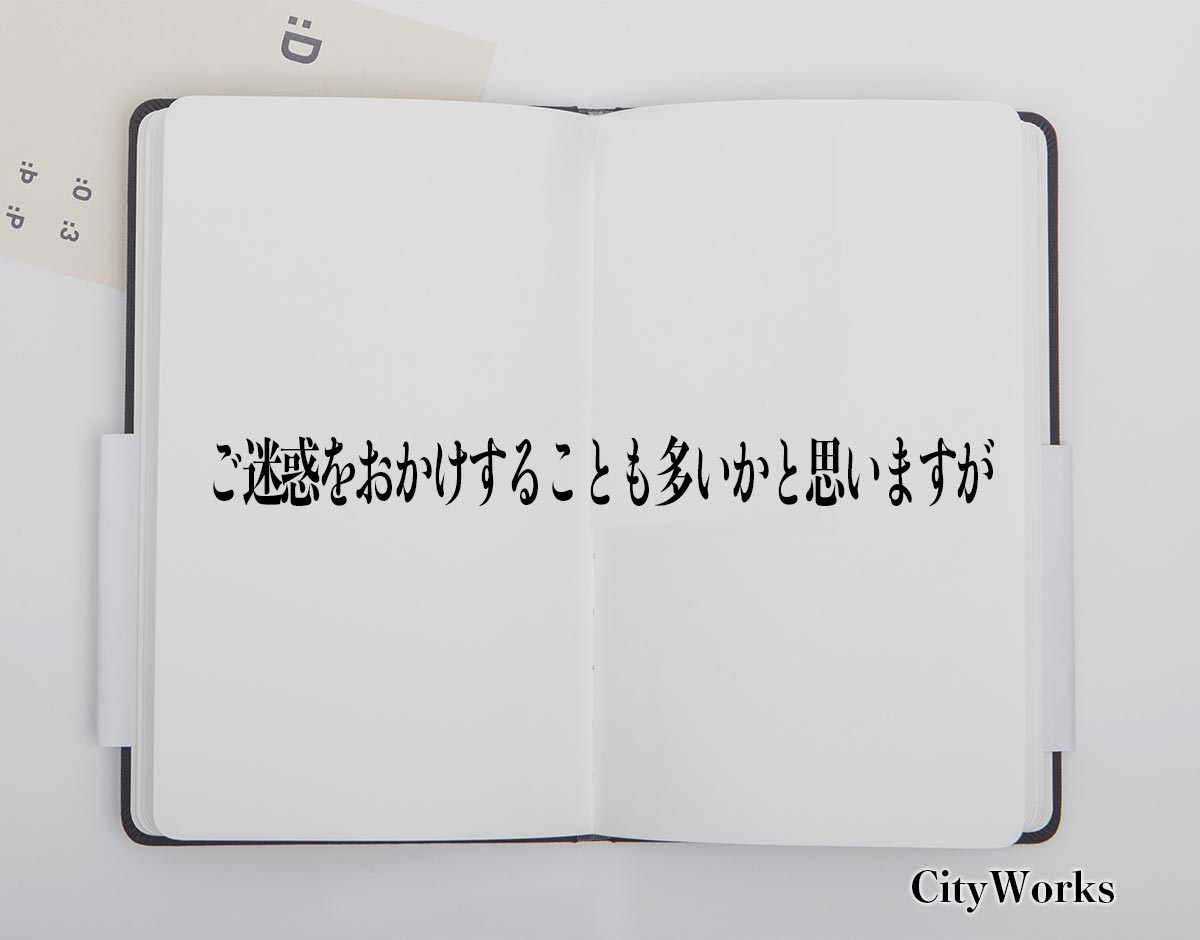 :D
:P
:O
:P
:3
ご迷惑をおかけすることも多いかと思いますが
CityWorks